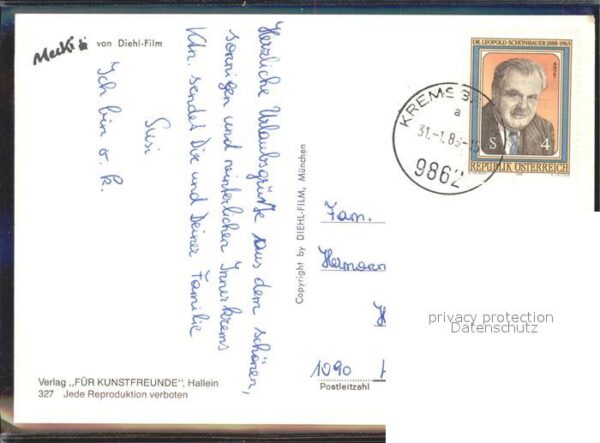 Mecki von Diehl-Film
Herzliche Urlaubsgrüße aus dem schönen,
sonnigen und winterlichen Innerkrems
Ktn. sendet Dir und Deiner Familie
Susi
Ich bin o. k.
Copyright by DIEHL-FILM, München
Verlag „FÜR KUNSTFREUNDE", Hallein
327 Jede Reproduktion verboten
DR. LEOPOLD SCHÖNBAUER 1888-1963
S 4
REPUBLIK ÖSTERREICH
KREMS
a
31.-1.83-
9862
Fam.
Hermann
H
1090
Postleitzahl
privacy protection
Datenschutz